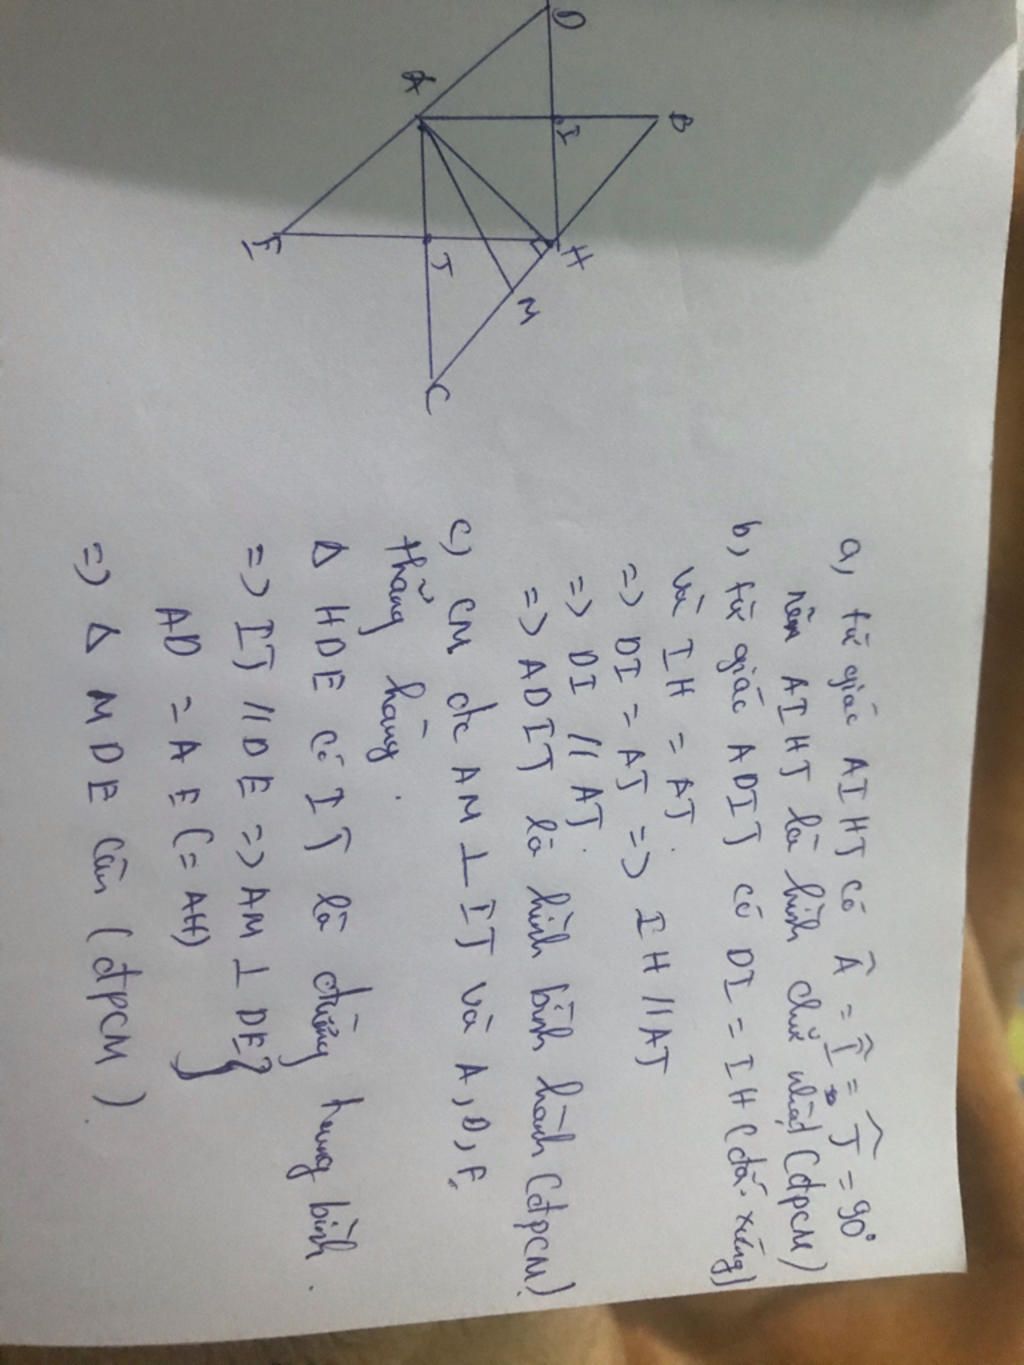 D
A
I
B
E
J
H
M
C
a, tứ giác AIHJ có Â = Î = Ĵ = 90°
nên AIHJ là hình chữ nhật (đpcm)
b, tứ giác ADIJ có DI = IH (đối xứng)
và IH = AJ
=> DI = AJ => IH // AJ
=> DI // AJ
=> ADIJ là hình bình hành (đpcm)
c, CM đc AM ⊥ IJ và A, D, E
thẳng hàng.
Δ HDE có IJ là đường trung bình.
=> IJ // DE => AM ⊥ DE }
AD = AE (= AH)
=> Δ MDE cân (đpcm).